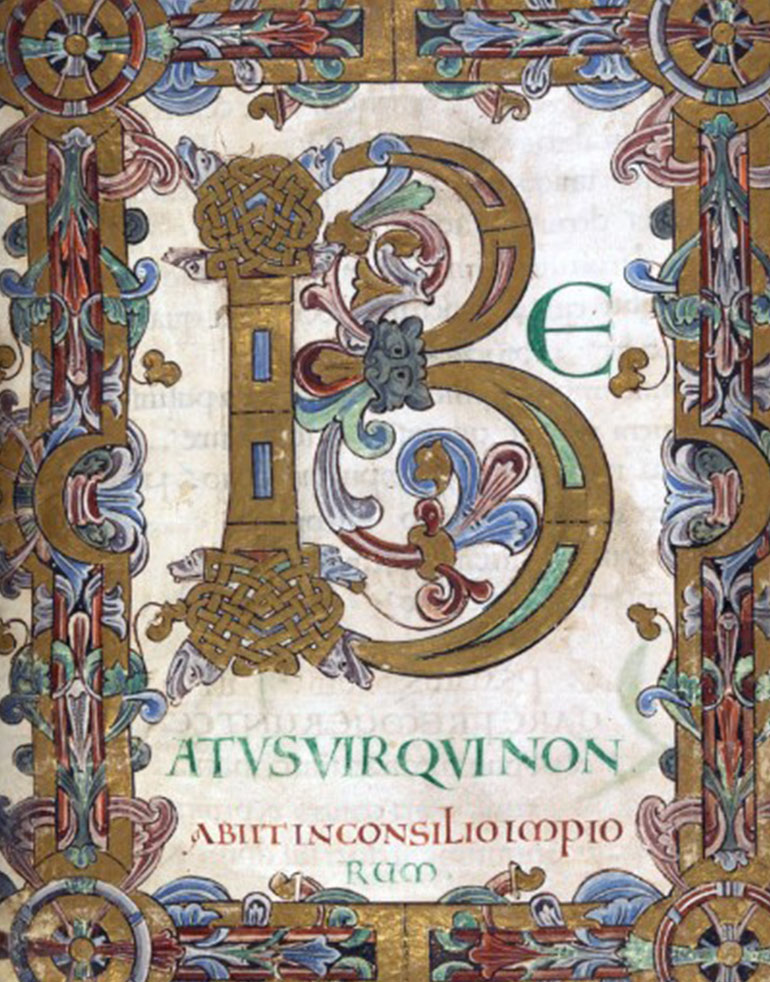 BE
ATVS VIR QVI NON
ABIIT IN CONSILIO IMPIO
RUM.